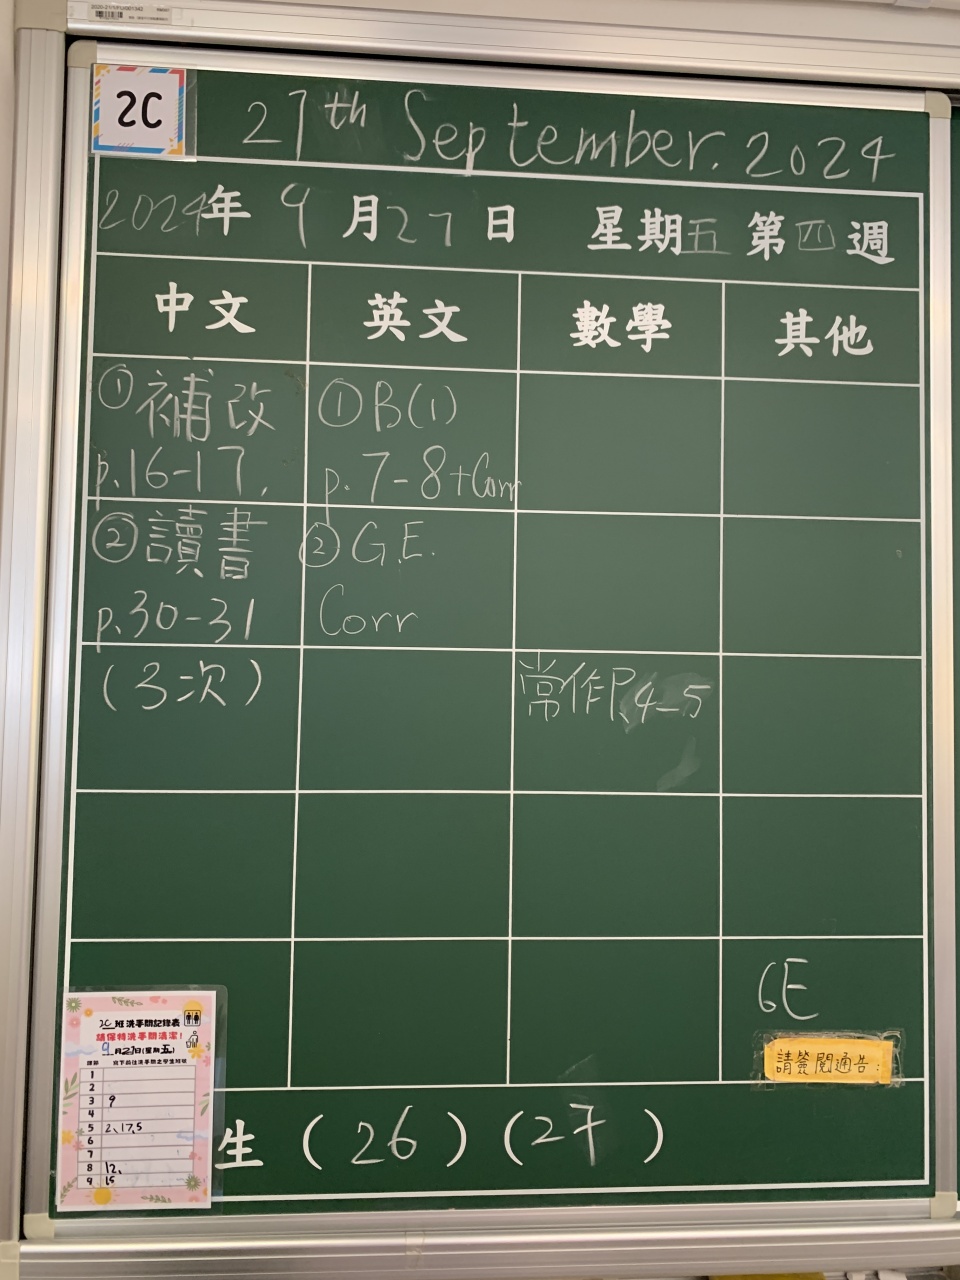 2C
27th September. 2024
2024年 9月27日 星期五 第四週
中文 英文 數學 其他
①補改
p.16-17.
②讀書
p.30-31
(3次)
①B(1)
p.7-8+Corr
②G.E.
Corr
常作P.4-5
GE
請簽閱通告:
生(26)(27)
2C班洗手間記錄表
請保持洗手間清潔!
9月27日(星期五)
課節 寫下前往洗手間之學生班號
1
2
3 9
4
5 2、17、5
6
7
8 12、
9 15